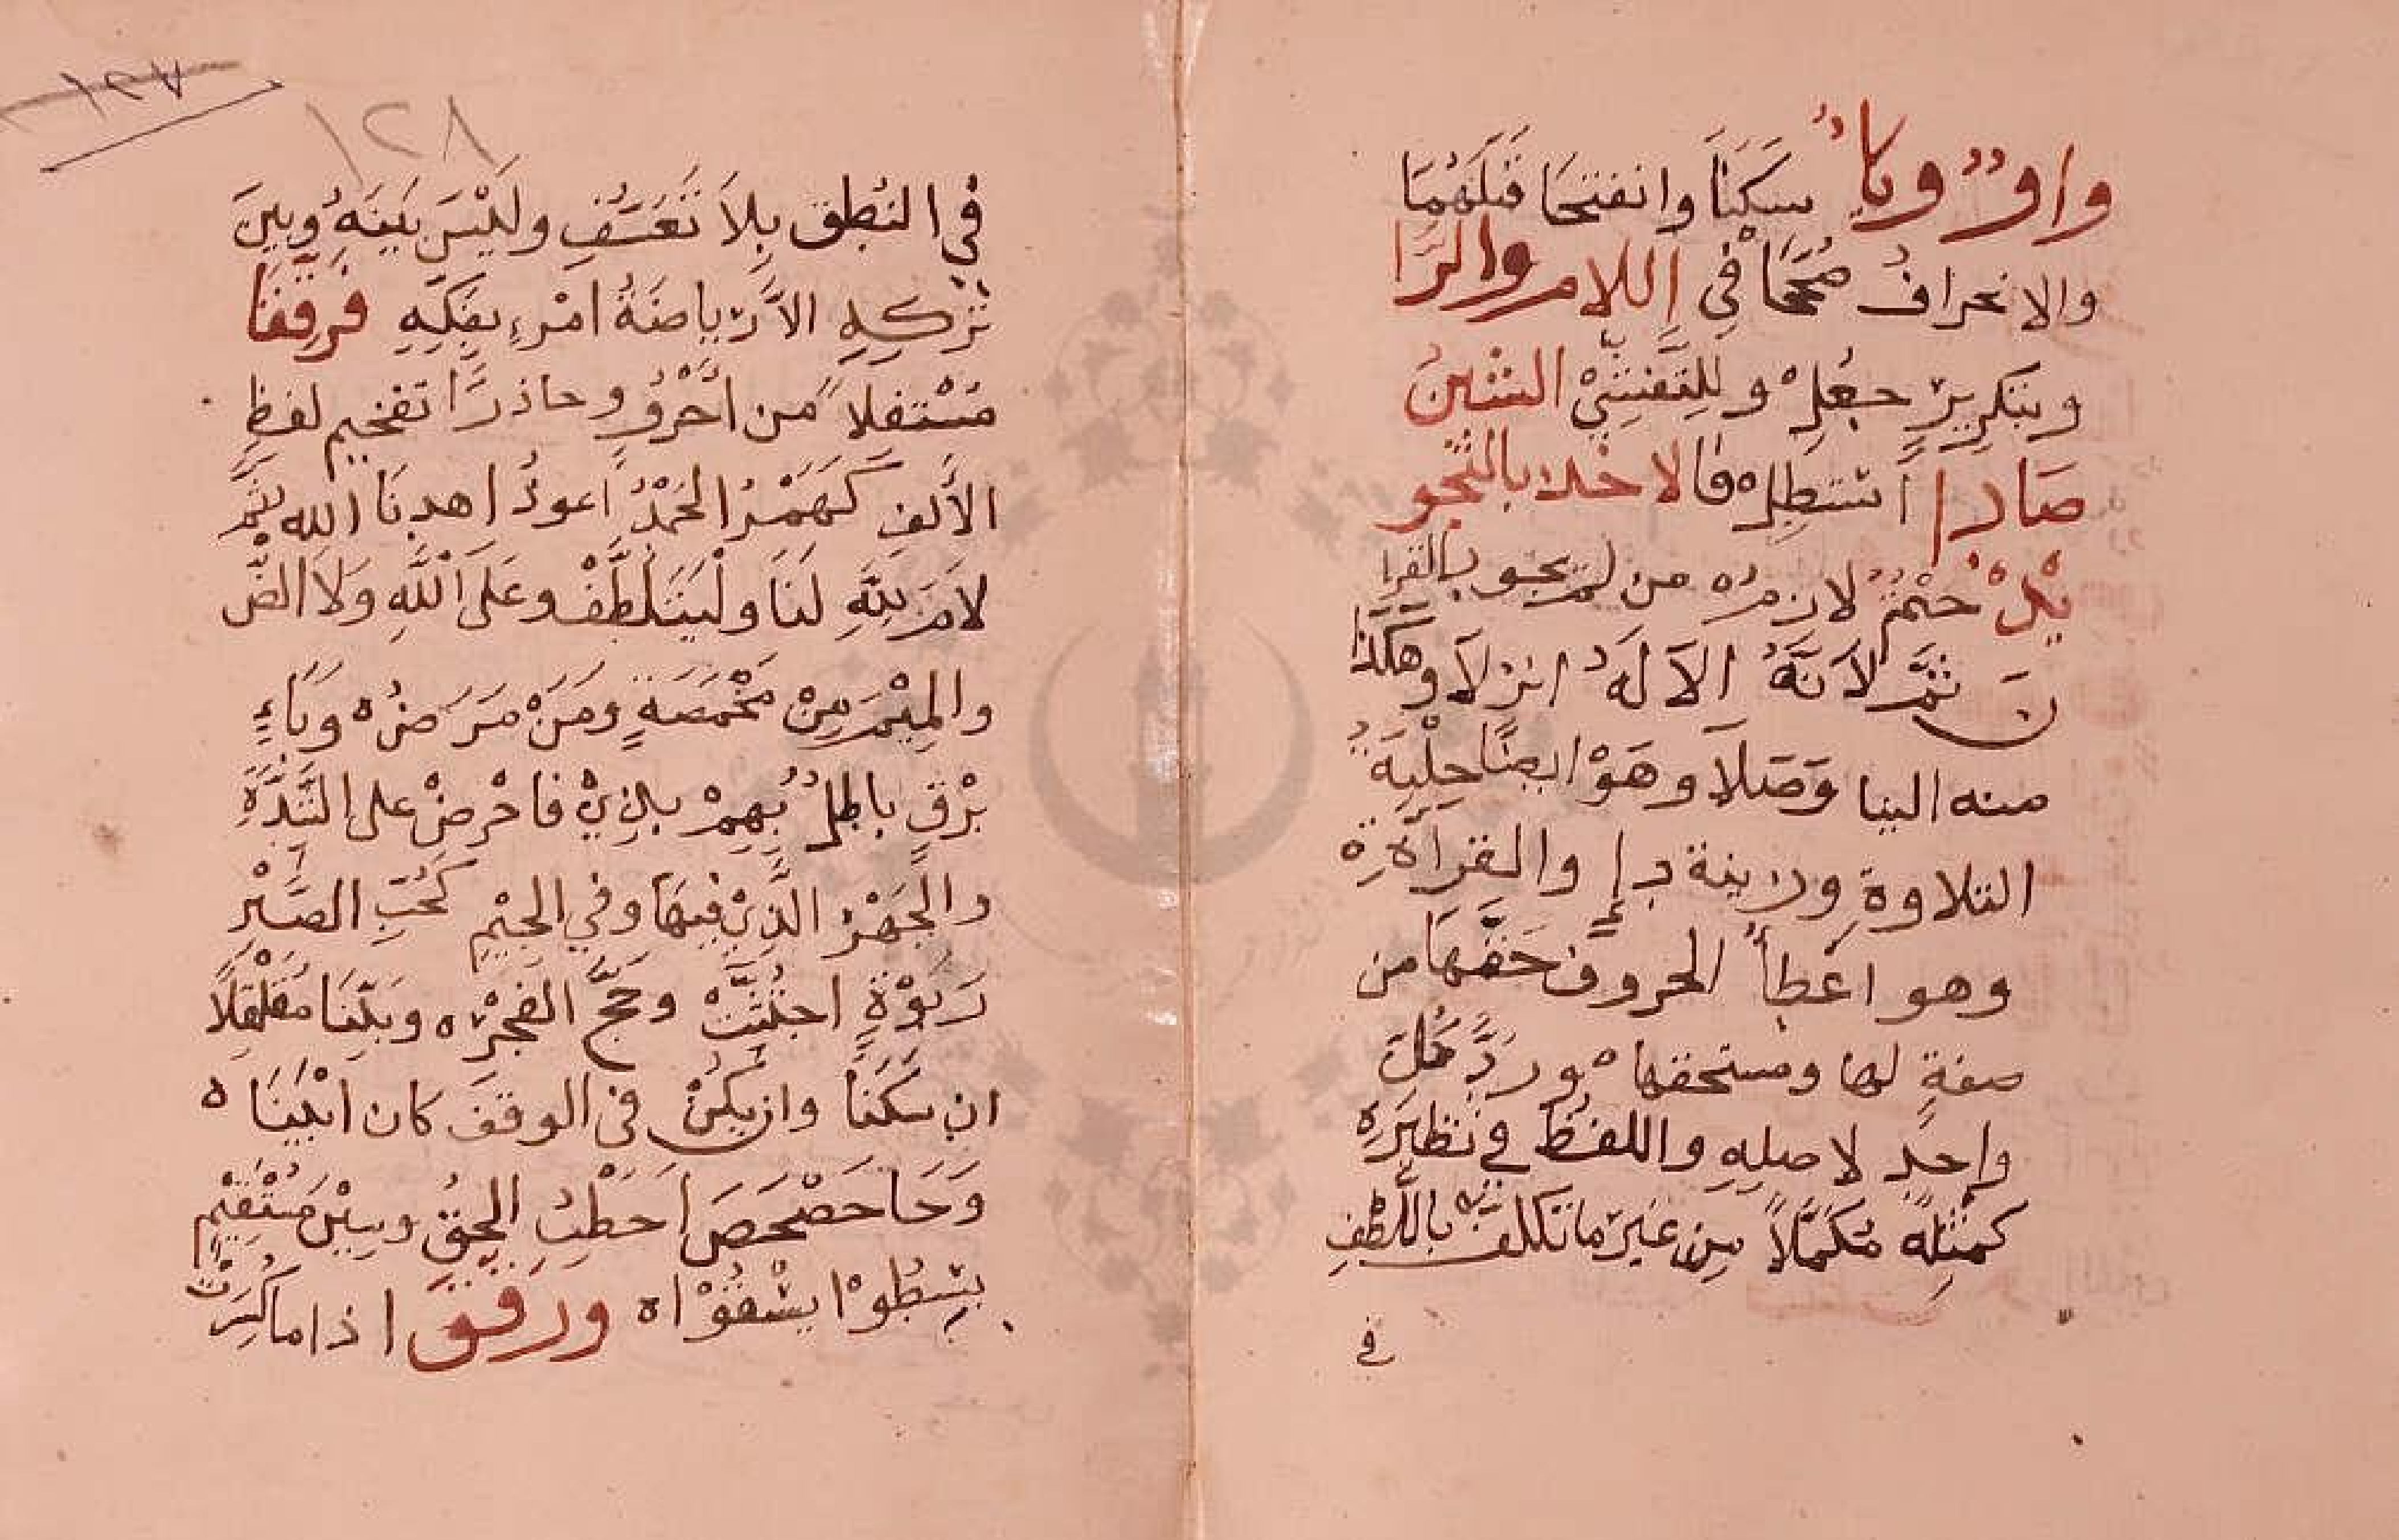 واوٌ وياءٌ سكنا وانفتحا قبلهما
والانحراف صححا في اللام والرا
وبتكرير جعل وللتفشي الشين
ضادا استطل والاخذ بالتجو
يد حتم لازم من لم يجو بالقرا
ن ثم لانه الاله انزلا وهكذا
منه الينا وصلا وهو ايضا حلية
التلاوة وزينة داء والقراة
وهو اعطاء الحروف حقها من
صفة لها ومستحقها ورد كل
واحد لاصله واللفظ في نظيره
كمثله مكملا من غير ما تكلف باللطف
في
١٢٧
١٢٨
في النطق بلا تعسف وليس بينه وبين
تركه الا رياضة امرء بفكه فرققا
مستفلا من احرف وحاذرا تفخيم لفظ
الالف كهمز الحمد اعوذ اهدنا الله ثم
لام لله لنا وليتلطف وعلى الله ولا الض
والميم من مخمصة ومن مرض وباء
برق باطل بهم بذي فاحرص على الشدة
والجهر الذي فيها وفي الجيم كحب الصبر
ربوة اجتثت وحج الفجر وبينا مقلقلا
ان سكنا وان يكن في الوقف كان ابينا
وحا حصحص احطت الحق وسين مستقيم
يسطوا يسقوا ورقق اذا ما كسرت